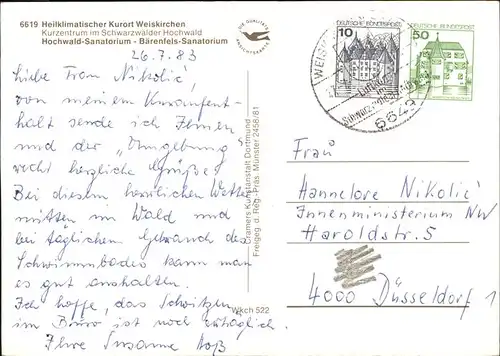 6619 Heilklimatischer Kurort Weiskirchen
Kurzentrum im Schwarzwälder Hochwald
Hochwald-Sanatorium - Bärenfels-Sanatorium
DIE QUALITÄTS
ANSICHTSKARTE
26.7.83
Liebe Frau Nikolić,
von meinem Kuraufent-
halt sende ich Ihnen
und der "Umgebung"
recht herzliche Grüße!
Bei diesem herrlichen Wetter
mitten im Wald und
bei täglichem Gebrauch des
Schwimmbades kann man
es gut aushalten.
Ich hoffe, das Schwitzen
im Büro ist noch erträglich
Ihre Susanne
Cramers Kunstanstalt Dortmund
Freigeg. d. Reg.-Präs. Münster 2458/81
Wkch 522
DEUTSCHE BUNDESPOST
10
DEUTSCHE BUNDESPOST
50
WEISK
Luftkurort
6649
Frau
Hannelore Nikolić
Innenministerium NW
Haroldstr. 5
4000 Düsseldorf 1